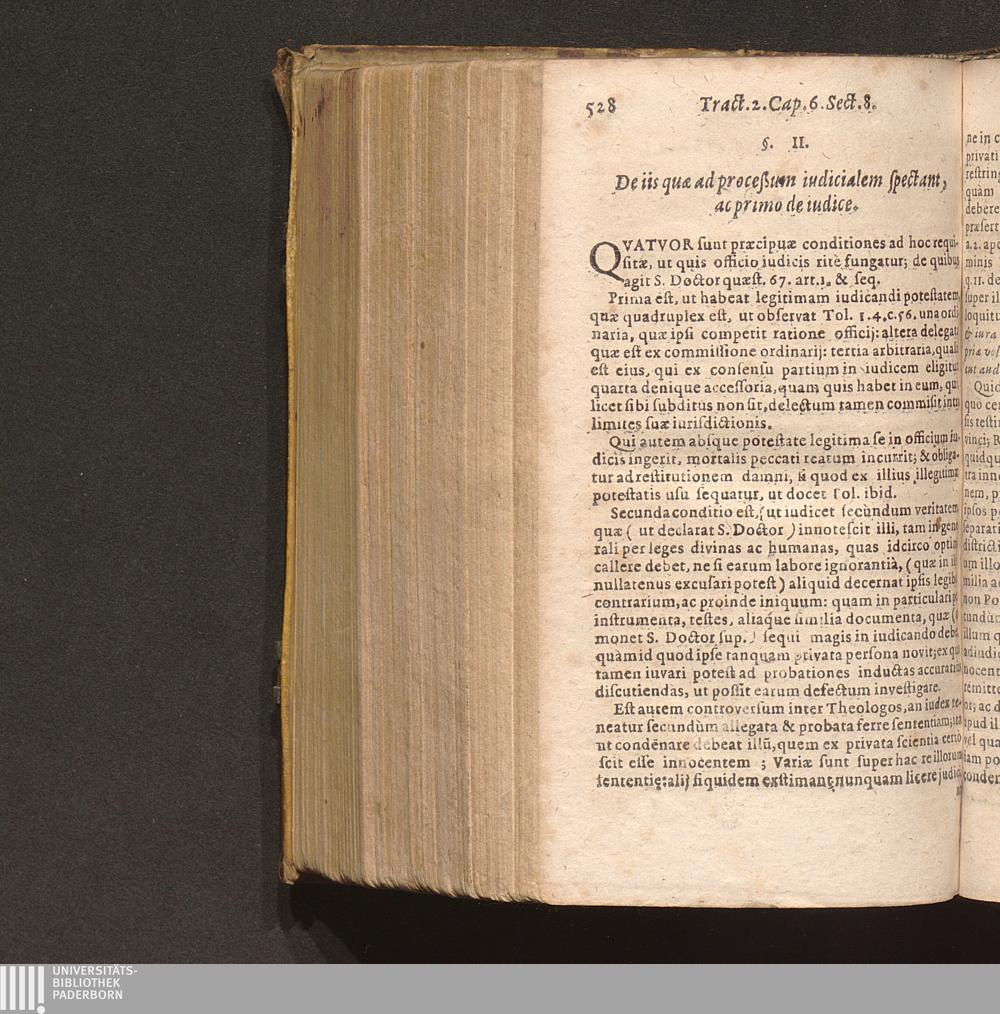 528 Tract.2.Cap.6.Sect.8.
§. II.
De iis quæ ad proceßum iudicialem spectant,
ac primo de iudice.
QVATVOR sunt præcipuæ conditiones ad hoc requi-
sitæ, ut quis officio iudicis ritè fungatur; de quibus
agit S. Doctor quæst. 67. art.1. & seq.
Prima est, ut habeat legitimam iudicandi potestatem,
quæ quadruplex est, ut observat Tol. 1.4.c.56. una ordi
naria, quæ ipsi competit ratione officij: altera delegat
quæ est ex commissione ordinarij: tertia arbitraria, quali
est eius, qui ex consensu partium in iudicem eligitur
quarta denique accessoria, quam quis habet in eum, qui
licet sibi subditus non sit, delectum tamen commisit intr
limites suæ iurisdictionis.
Qui autem absque potestate legitima se in officium iu-
dicis ingerit, mortalis peccati reatum incurrit; & obliga-
tur ad restitutionem damni, si quod ex illius illegitimæ
potestatis usu sequatur, ut docet Tol. ibid.
Secunda conditio est, (ut iudicet secundum veritatem,
quæ ( ut declarat S. Doctor ) innotescit illi, tam in gene
rali per leges divinas ac humanas, quas idcirco optim
callere debet, ne si earum labore ignorantià, ( quæ in ill
nullatenus excusari potest ) aliquid decernat ipsis legibu
contrarium, ac proinde iniquum: quam in particulari p
instrumenta, testes, aliaque similia documenta, quæ (
monet S. Doctor sup.) sequi magis in iudicando debe
quàm id quod ipse tanquam privata persona novit; ex qu
tamen iuvari potest ad probationes inductas accuratius
discutiendas, ut possit earum defectum investigare.
Est autem controversum inter Theologos, an iudex te-
neatur secundùm allegata & probata ferre sententiam; ita
ut condēnare debeat illū, quem ex privata scientia certò
scit esse innocentem ; Variæ sunt super hac re illorum
sententię: alij siquidem exstimant, nunquam licere judici
ne in c
privati
restring
quàm
debere
præsert
a.2. ape
minis
q.11. de
super il
loquitu
& iura
pria vol
tut aud
Quid
quo cer
sis testi
vinci; R
quidqu
tra inno
nem, p
ipsos p
separati
districti
um illo
milia ac
non Po
cundùm
illum q
adiudic
nocent
remitte
or; ac d
ipud il
vel qua
iam po
conden
UNIVERSITÄTS-
BIBLIOTHEK
PADERBORN